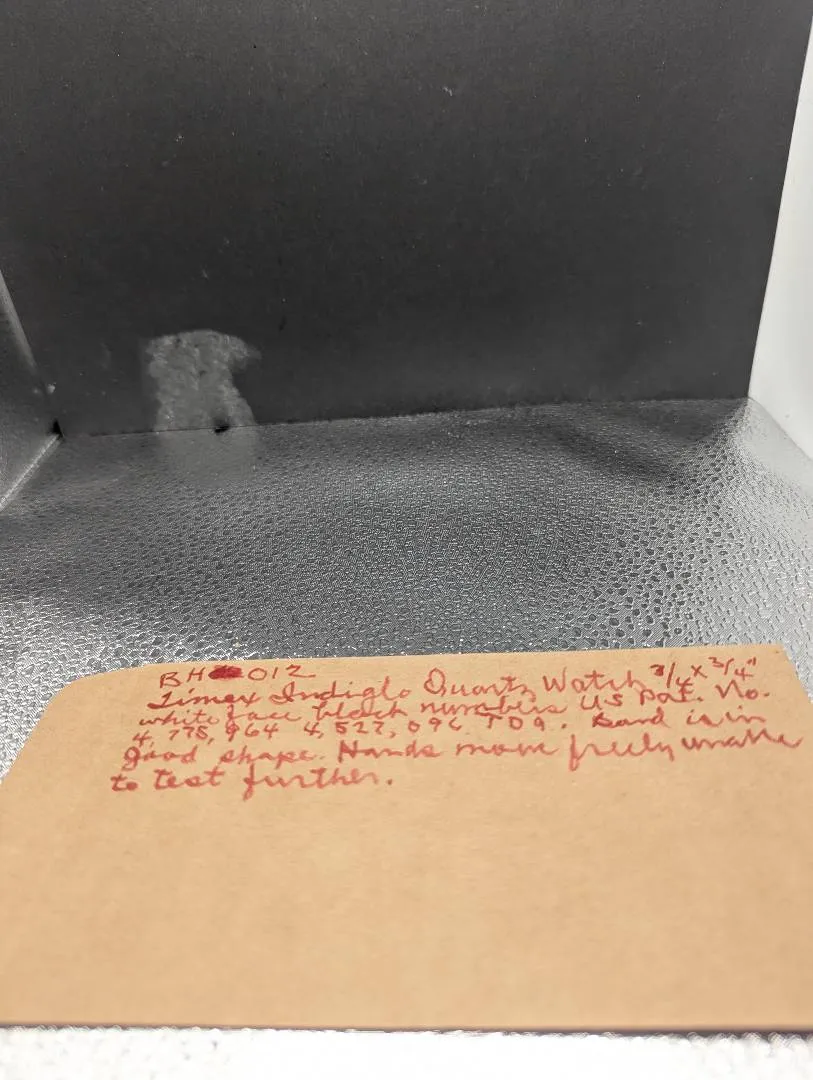 BH 012
Timex Indiglo Quartz Watch 3/4 x 3/4"
white face black numbers US Pat. No.
4,775,964 4,527,096 TD9. Band is in
good shape. Hands move freely unable
to test further.